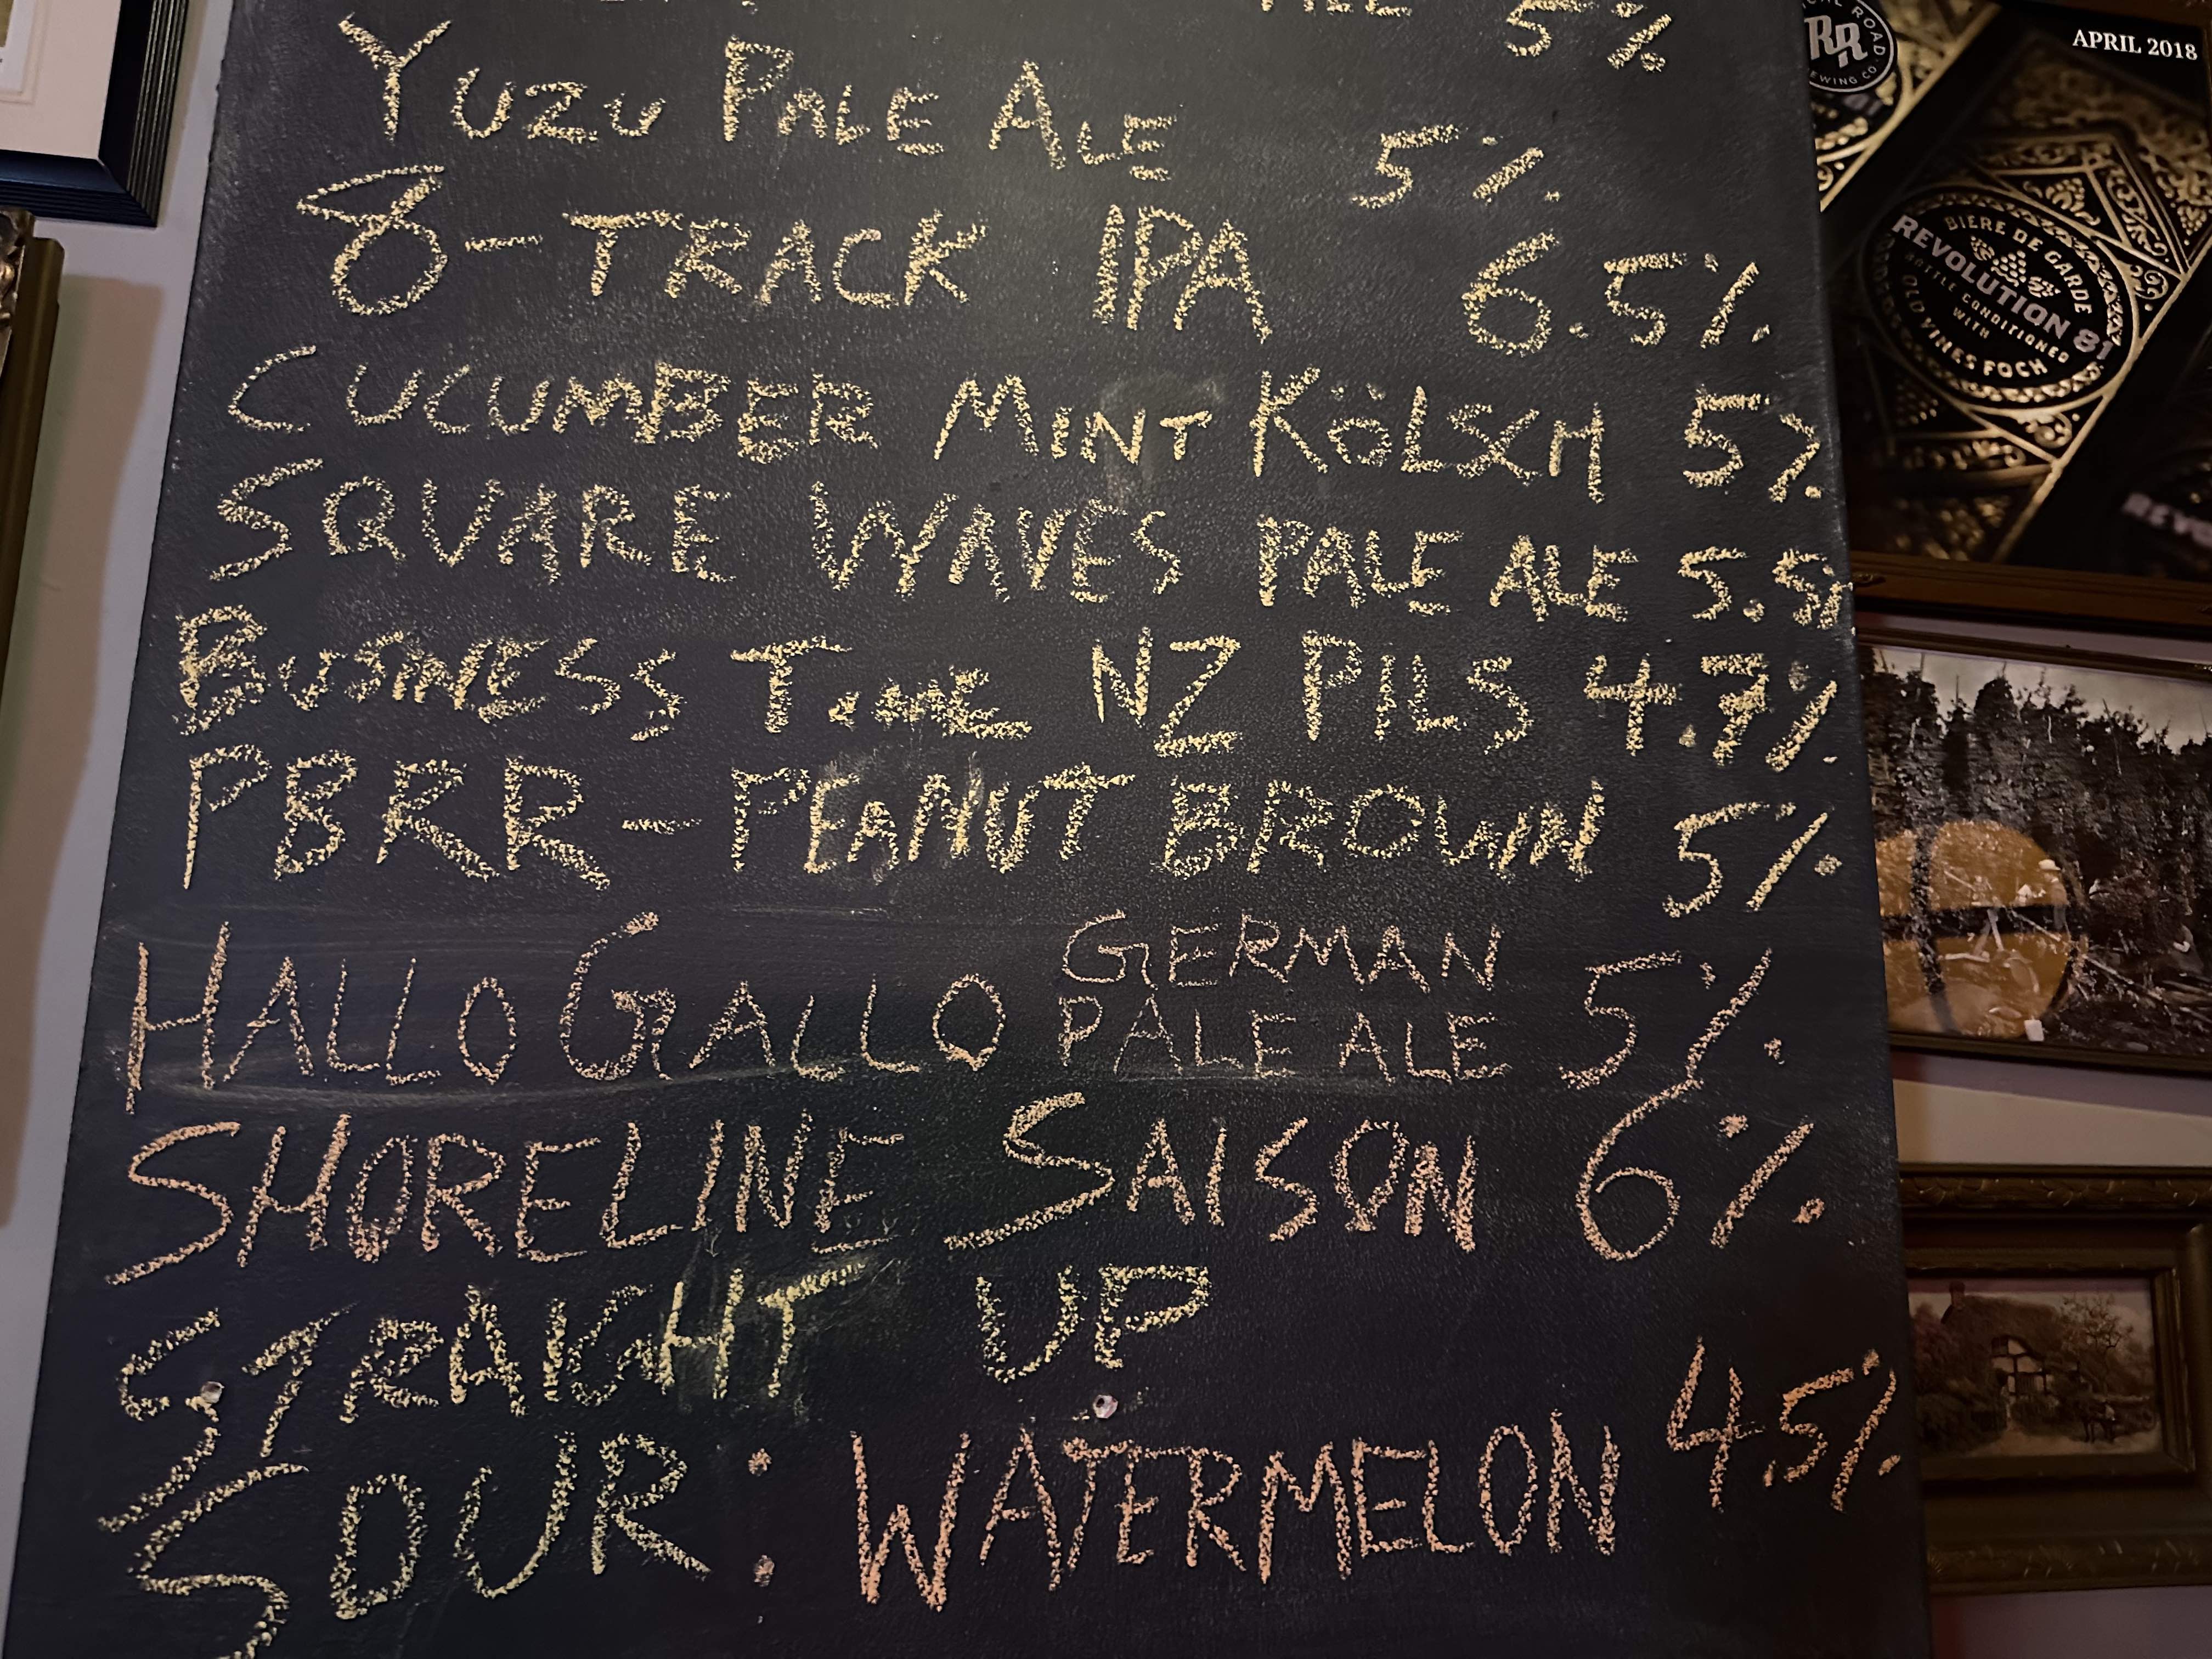 5%
YUZU PALE ALE 5%
8-TRACK IPA 6.5%
CUCUMBER MINT KÖLSCH 5%
SQUARE WAVES PALE ALE 5.5%
BUSINESS TIME NZ PILS 4.7%
PBRR-PEANUT BROWN 5%
HALLO GALLO GERMAN
PALE ALE 5%
SHORELINE SAISON 6%
STRAIGHT UP
SOUR: WATERMELON 4.5%
APRIL 2018
ROAD
RR
EWING CO.
BIERE DE GARDE
REVOLUTION 81
BOTTLE CONDITIONED
WITH
OLD VINES FOCH